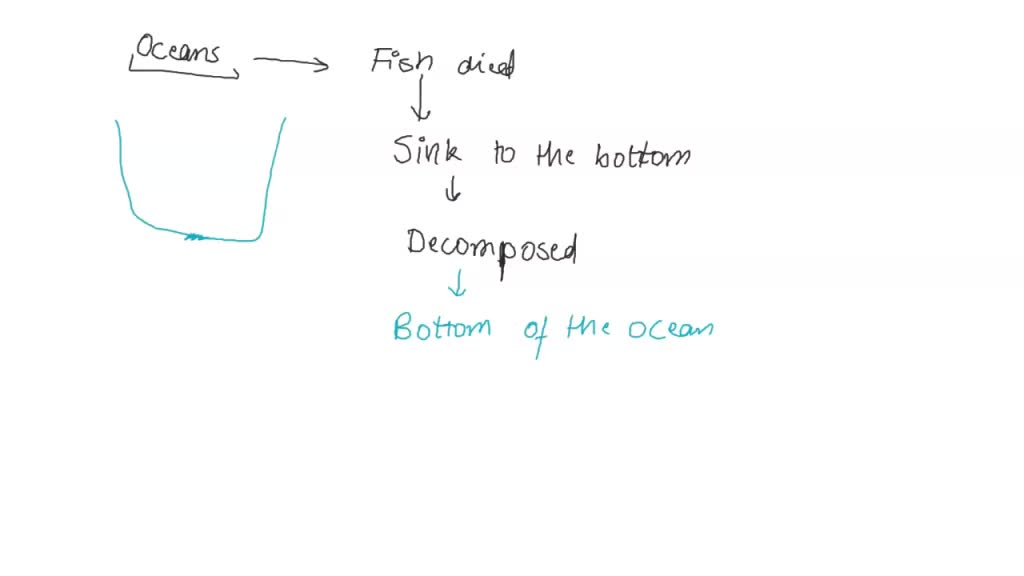 Oceans → Fish died
↓
Sink to the bottom
↓
Decomposed
↓
Bottom of the ocean